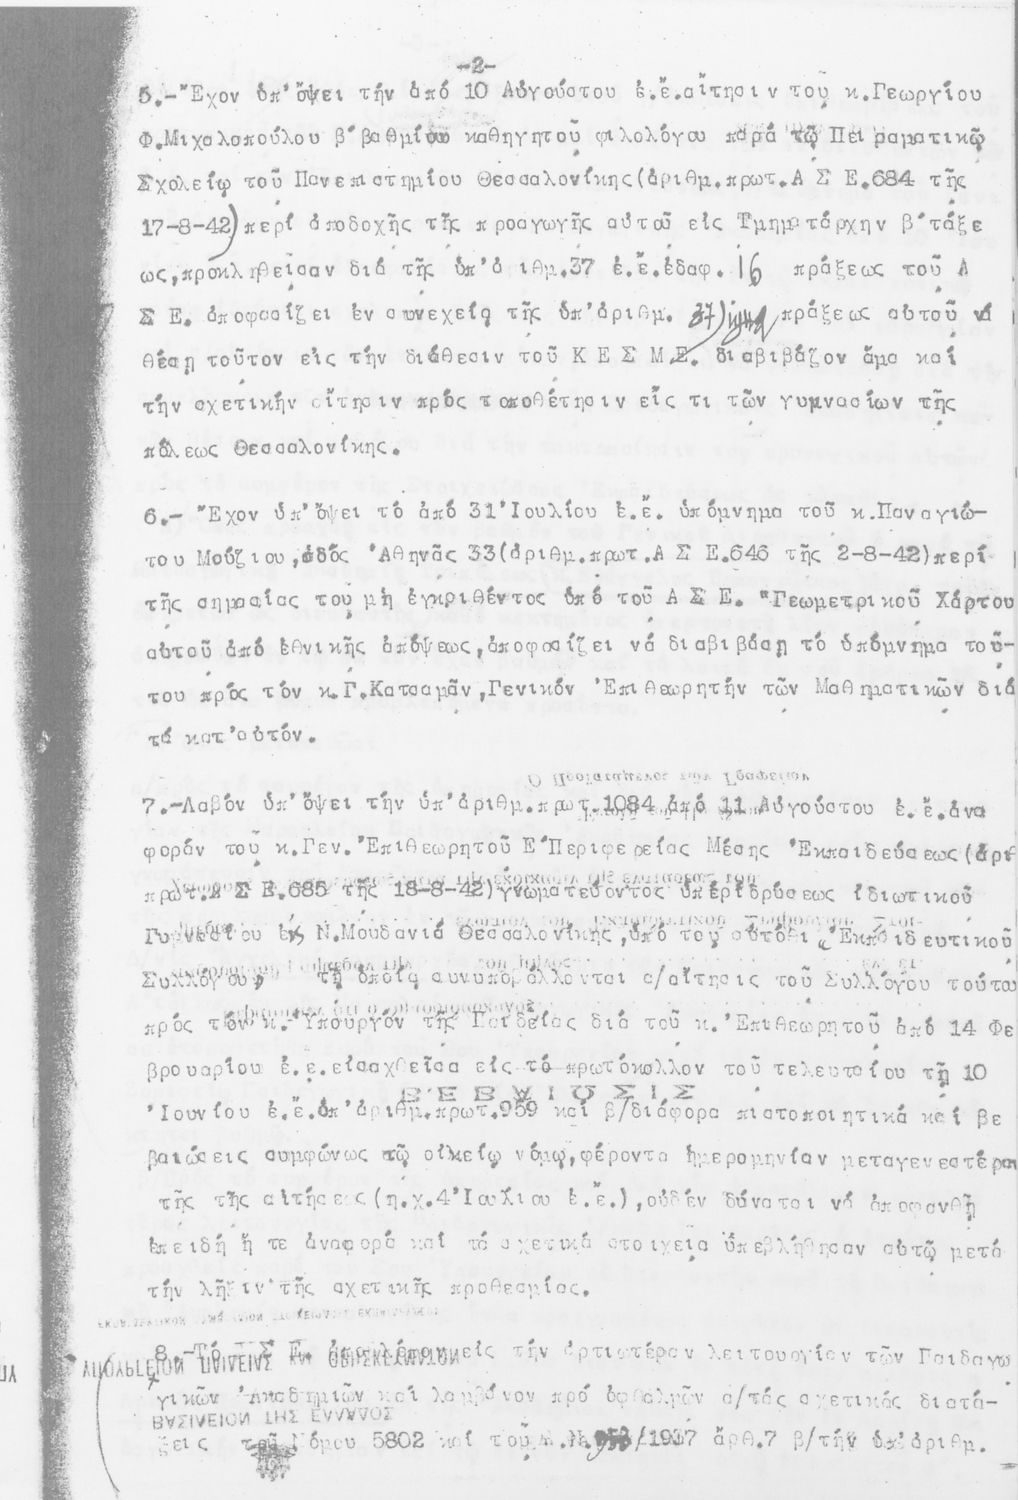 -2-
5.-Ἔχον ὑπ'ὄψει τήν ἀπό 10 Αὐγούστου ἐ.ἔ.αἴτησιν τοῦ κ.Γεωργίου
Φ.Μιχαλοπούλου β΄βαθμίου καθηγητοῦ φιλολόγου παρά τῷ Πειραματικῷ
Σχολείῳ τοῦ Πανεπιστημίου Θεσσαλονίκης(ἀριθμ.πρωτ.Α Σ Ε.684 τῆς
17-8-42)περί ἀποδοχῆς τῆς προαγωγῆς αὐτοῦ εἰς Τμηματάρχην β΄τάξε
ως,προκληθεῖσαν διά τῆς ὑπ'ἀριθμ.37 ἐ.ἔ.ἐδαφ.16 πράξεως τοῦ Α
Σ Ε. ἀποφασίζει ἐν συνεχείᾳ τῆς ὑπ'ἀριθμ. 37) πράξεως αὐτοῦ νά
θέσῃ τοῦτον εἰς τήν διάθεσιν τοῦ Κ Ε Σ Μ Ε. διαβιβάζον ἅμα καί
τήν σχετικήν αἴτησιν πρός τοποθέτησιν εἴς τι τῶν γυμνασίων τῆς
πόλεως Θεσσαλονίκης.
6.- Ἔχον ὑπ'ὄψει τό ἀπό 31 Ἰουλίου ἐ.ἔ. ὑπόμνημα τοῦ κ.Παναγιώ-
του Μούζιου,ὁδός Ἀθηνᾶς 33(ἀριθμ.πρωτ.Α Σ Ε.646 τῆς 2-8-42)περί
τῆς σημασίας τοῦ μή ἐγκριθέντος ὑπό τοῦ Α Σ Ε. "Γεωμετρικοῦ Χάρτου
αὐτοῦ ἀπό ἐθνικῆς ἀπόψεως,ἀποφασίζει νά διαβιβάσῃ τό ὑπόμνημα τοῦ-
του πρός τόν κ.Γ.Κατσαμᾶν,Γενικόν Ἐπιθεωρητήν τῶν Μαθηματικῶν διά
τά κατ'αὐτόν.
7.-Λαβόν ὑπ'ὄψει τήν ὑπ'ἀριθμ.πρωτ.1084 ἀπό 11 Αὐγούστου ἐ.ἔ.ἀνα
φοράν τοῦ κ.Γεν.Ἐπιθεωρητοῦ Ε΄Περιφερείας Μέσης Ἐκπαιδεύσεως(ἀριθ
πρωτ.Α Σ Ε.685 τῆς 18-8-42)γνωματεύοντος ὑπέρ ἱδρύσεως ἰδιωτικοῦ
Γυμνασίου ἐν Ν.Μουδανιά Θεσσαλονίκης,ὑπό τοῦ αὐτόθι Ἐκπαιδευτικοῦ
Συλλόγου, τῇ ὁποίᾳ συνυποβάλλονται α/αἴτησις τοῦ Συλλόγου τούτου
πρός τόν κ. Ὑπουργόν τῆς Παιδείας διά τοῦ κ.Ἐπιθεωρητοῦ ἀπό 14 Φε
βρουαρίου ἐ.ἔ.εἰσαχθεῖσα εἰς τό πρωτόκολλον τοῦ τελευταίου τῇ 10
Ἰουνίου ἐ.ἔ.ὑπ'ἀριθμ.πρωτ.959 καί β/διάφορα πιστοποιητικά καί βε
βαιώσεις συμφώνως τῷ οἰκείῳ νόμῳ,φέροντα ἡμερομηνίαν μεταγενεστέραν
τῆς τῆς αἰτήσεως(π.χ.4 Ἰουλίου ἐ.ἔ.),οὐδέν δύναται νά ἀποφανθῇ
ἐπειδή ἥ τε ἀναφορά καί τά σχετικά στοιχεῖα ὑπεβλήθησαν αὐτῷ μετά
τήν λῆξιν τῆς σχετικῆς προθεσμίας.
8.-Τό Α Σ Ε. εἰς τήν ἀρτιωτέραν λειτουργίαν τῶν Παιδαγω
γικῶν Ἀκαδημιῶν καί λαμβάνον πρό ὀφθαλμῶν α/τάς σχετικάς διατά-
ξεις τοῦ Νόμου 5802 καί τοῦ Α.Ν. 953/1937 ἄρθ.7 β/τήν ὑπ'ἀριθμ.
ΒΕΒΑΙΩΣΙΣ
ΒΑΣΙΛΕΙΟΝ ΤΗΣ ΕΛΛΑΔΟΣ